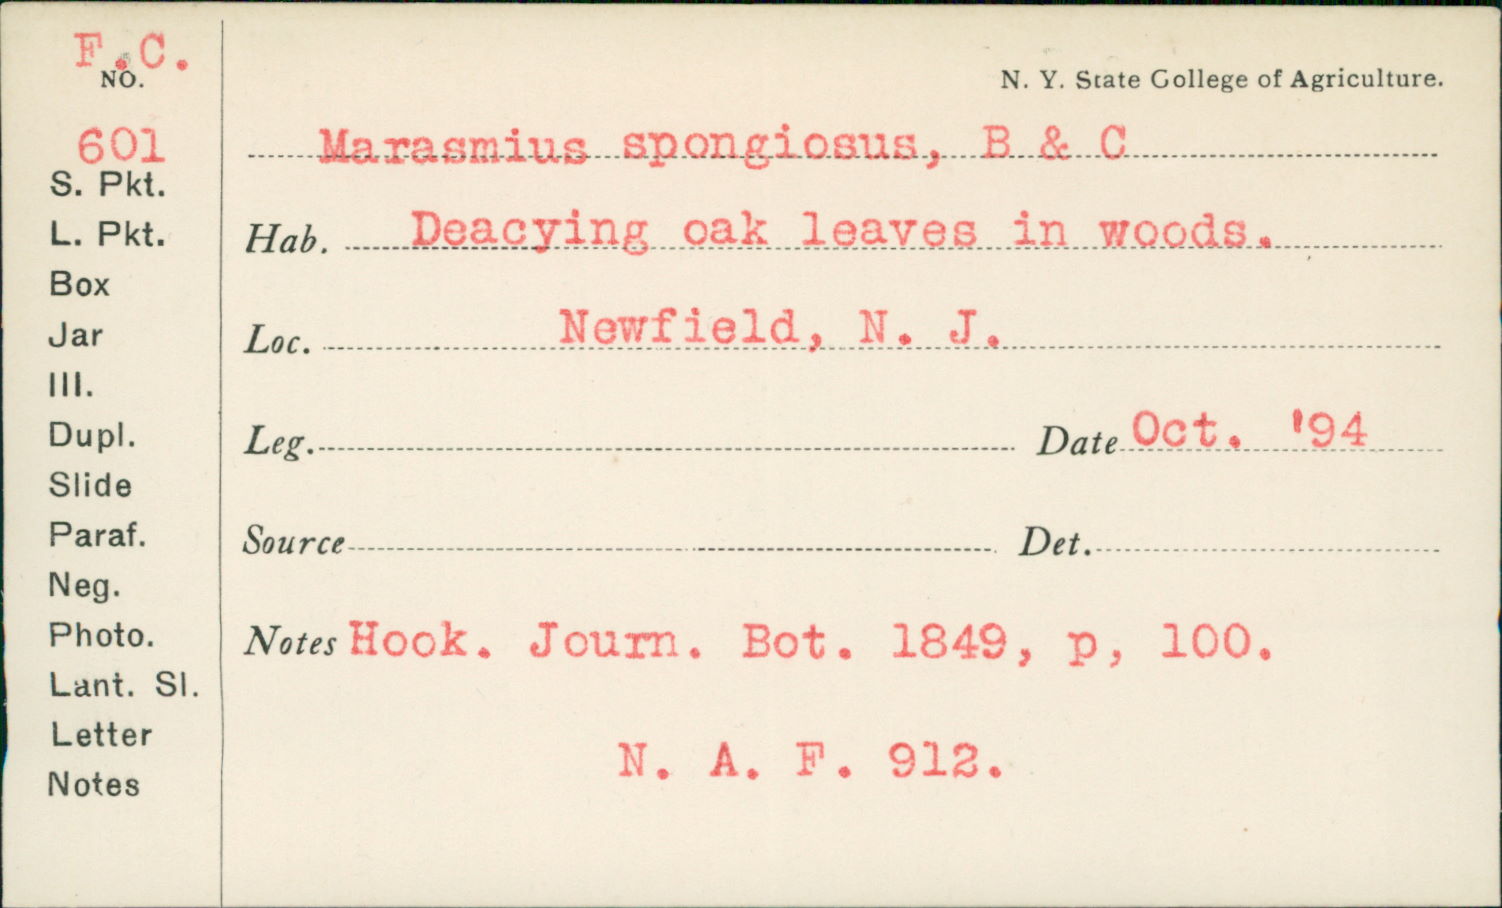 F.C.
NO.
N. Y. State College of Agriculture.
601
Marasmius spongiosus, B & C
S. Pkt.
L. Pkt.
Hab. Deacying oak leaves in woods.
Box
Jar
Loc. Newfield, N. J.
Ill.
Dupl.
Leg. Date Oct. '94
Slide
Paraf.
Source Det.
Neg.
Photo.
Notes Hook. Journ. Bot. 1849, p, 100.
Lant. Sl.
Letter
N. A. F. 912.
Notes